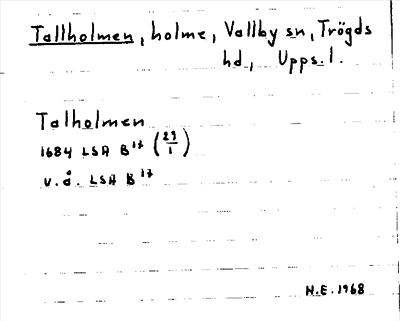 Tallholmen, holme, Vallby sn, Trögds
hd., Upps.l.
Talholmen
1684 LSA B¹⁷ (29/1)
v.å. LSA B¹⁷
H.E. 1968